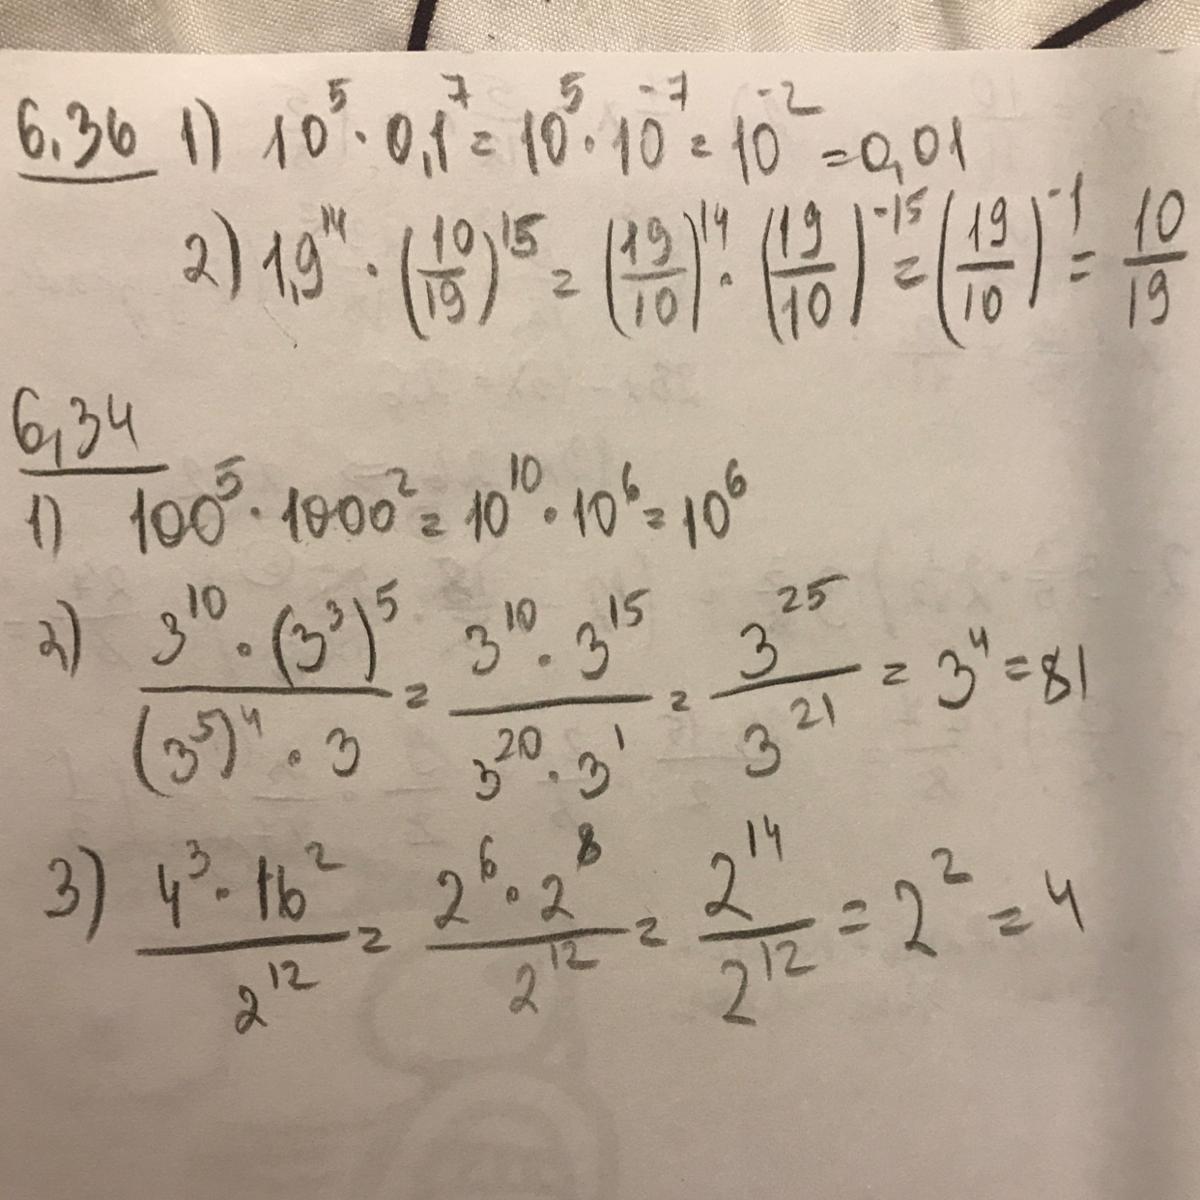 6.36 1) 10⁵ · 0,1⁷ = 10⁵ · 10⁻⁷ = 10⁻² = 0,01
2) 1,9¹⁴ · (10/19)¹⁵ = (19/10)¹⁴ · (19/10)⁻¹⁵ = (19/10)⁻¹ = 10/19
6,34
1) 100⁵ · 1000² = 10¹⁰ · 10⁶ = 10⁶
2) (3¹⁰ · (3³)⁵)/((3⁵)⁴ · 3) = (3¹⁰ · 3¹⁵)/(3²⁰ · 3¹) = 3²⁵/3²¹ = 3⁴ = 81
3) (4³ · 16²)/2¹² = (2⁶ · 2⁸)/2¹² = 2¹⁴/2¹² = 2² = 4